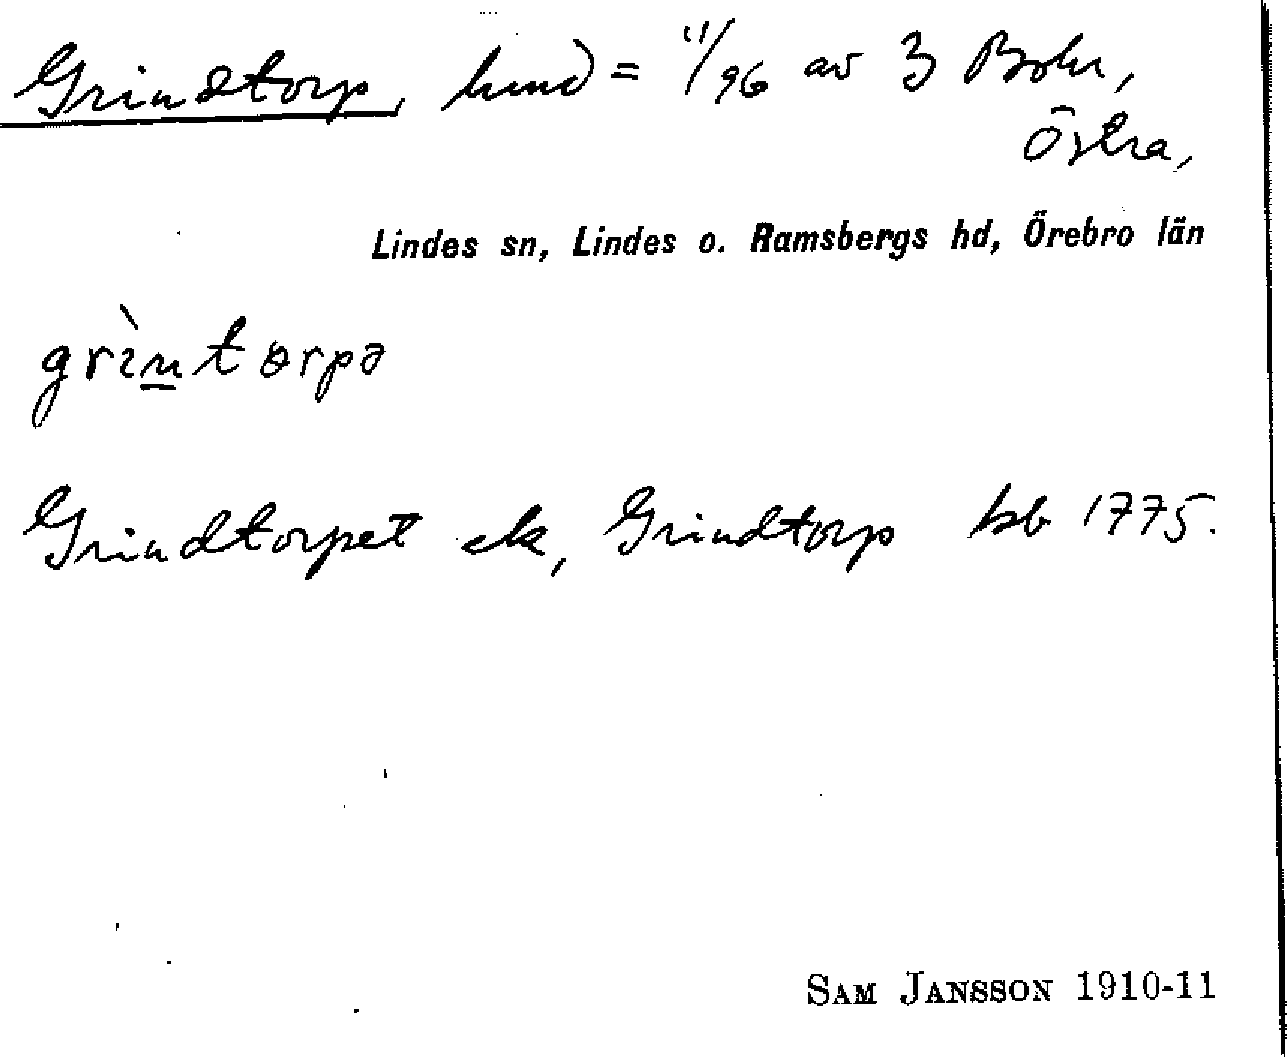 Grindtorp, hmd = 11/96 av 3 Bohr,
Östra,
Lindes sn, Lindes o. Ramsbergs hd, Örebro län
grìntorpə
Grindtorpet ek, Grindtorp kb 1775.
SAM JANSSON 1910-11